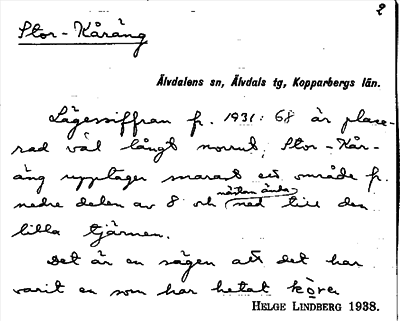 2
Stor-Kåräng
Älvdalens sn, Älvdals tg, Kopparbergs län.
Lägessiffran fr. 1931: 68 är place-
rad väl långt norrut, Stor-Kår-
äng upptager snarast ett område fr.
nästan ända
nedre delen av 8 och ned till den
lilla tjärnen.
Det är en sägen att det har
varit en som har hetat
HELGE LINDBERG 1938.